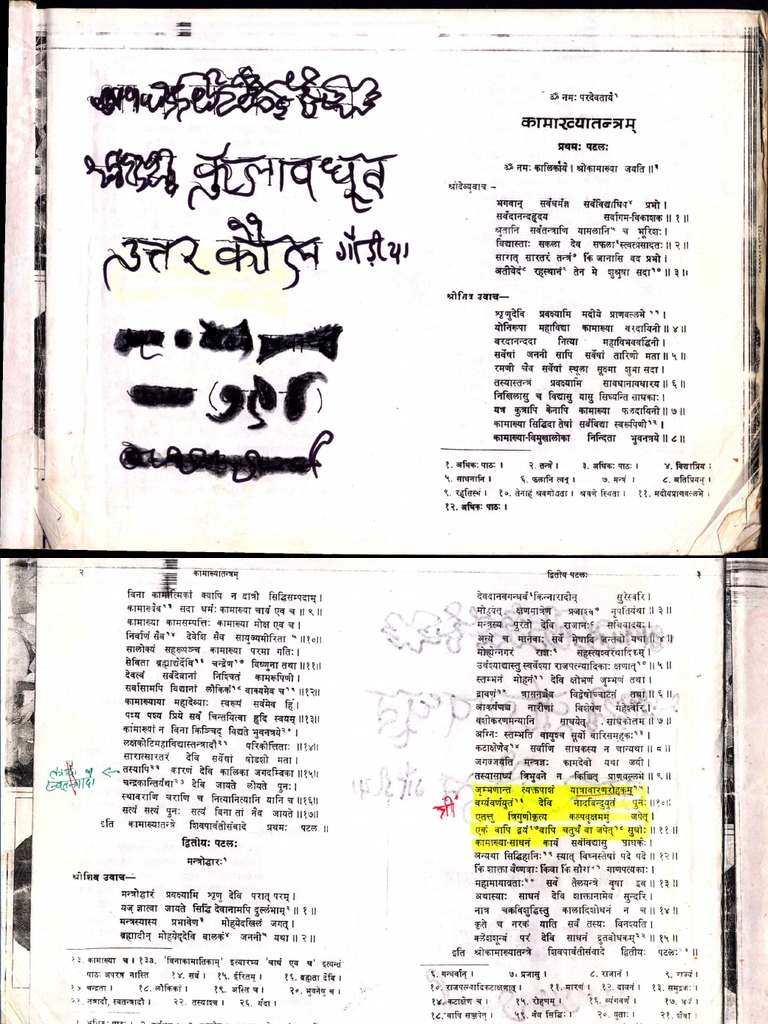 कुलावधूत
उत्तर कौल गौड़ीया
ॐ नमः परदेवतायै¹
कामाख्यातन्त्रम्
प्रथमः पटलः
ॐ नमः कालिकायै । श्रीकामाख्या जयति ॥²
श्रीदेव्युवाच –
भगवान् सर्वधर्मज्ञ सर्वविद्याधिप प्रभो ।
सर्वदानन्दहृदय सर्वागम-विकाशक ॥ १ ॥
श्रुतानि सर्वतन्त्राणि यामलानि⁵ च भूरिशः ।
विद्यास्ताः सकला देव सफलास्त्वत्प्रसादतः ॥ २ ॥
सारात् सारतरं तन्त्रं⁷ किं जानासि वद प्रभो ।
अतीवेदं⁸ रहस्यानं⁹ तेन मे शुश्रुषा सदा¹⁰ ॥ ३ ॥
श्रीशिव उवाच—
शृणुदेवि प्रवक्ष्यामि मदीये प्राणवल्लभे¹¹ ।
योनिरूपा महाविद्या कामाख्या वरदायिनी ॥ ४ ॥
वरदानन्ददा नित्या महाविभववर्द्धिनी ।
सर्वेषां जननी सापि सर्वेषां तारिणी मता ॥ ५ ॥
रमणी चैव सर्वेषां स्थूला सूक्ष्मा शुभा सदा ।
तस्यास्तन्त्रं प्रवक्ष्यामि सावधानावधारय ॥ ६ ॥
निखिलासु च विद्यासु यासु सिध्यन्ति साधकाः ।
यत्र कुत्रापि केनापि कामाख्या फलदायिनी ॥ ७ ॥
कामाख्या सिद्धिदा तेषां सर्वविद्या स्वरूपिणी¹² ।
कामाख्या-विमुखालोका निन्दिता भुवनत्रये ॥ ८ ॥
१. अधिकः पाठः । २. तन्त्रे । ३. अधिकः पाठः । ४. विद्याप्रिय ।
५. साधनानि । ६. फलानि त्वत् । ७. मन्त्रं । ८. अतिप्रियम् ।
९. १०. ११. मदीयप्राणवल्लभे ।
१२. अधिकः पाठः ।
२ कामाख्यातन्त्रम्
विना कामात्मिकां क्वापि न दात्री सिद्धिसम्पदाम् ।
कामाख्यैव¹³ सदा धर्मः कामाख्या चार्थ एव च ॥ ९ ॥
कामाख्या कामसम्पत्तिः कामाख्या मोक्ष एव च ।
निर्वाणं सैव¹⁴ देवेशि सैव सायुज्यमीरिता¹⁵ ॥१०॥
सालोक्यं सहरूप्यञ्च कामाख्या परमा गतिः ।
सेविता ब्रह्मणाद्यैर्देवि¹⁶ चन्द्रेण¹⁷ विष्णुना तथा ॥११॥
देवत्वं सर्वदेवानां निश्चितं कामरूपिणी ।
सर्वासामपि विद्यानां लौकिकं¹⁸ वाक्यमेव च ॥१२॥
कामाख्याया महादेव्याः स्वरूपं सर्वमेव हि ।
पश्य पश्य प्रिये सर्वं चिन्तयित्वा हृदि स्वयम् ॥१३॥
कामाख्यां न विना किञ्चिद् विद्यते भुवनत्रये²⁰ ।
लक्षकोटिमहाविद्यास्तन्त्रादौ²¹ परिकीर्त्तिताः ॥१४॥
सारात्सारतरं देवि सर्वेषां षोडशी मता ।
तस्यापि²² कारणं देवि कालिका जगदम्बिका ॥१५॥
चन्द्रकान्तिर्यथा²³ देवि जायते लीयते पुनः ।
स्थावराणि चराणि च नित्यानित्यानि यानि च ॥१६॥
सत्यं सत्यं पुनः सत्यं विना तां नैव जायते ॥१७॥
इति कामाख्यातन्त्रे शिवपार्वतीसंवादे प्रथमः पटलः ॥
द्वितीयः पटलः
मन्त्रोद्धारः¹
श्रीशिव उवाच—
मन्त्रोद्धारं प्रवक्ष्यामि शृणु देवि परात् परम् ।
यज् ज्ञात्वा जायते सिद्धि देवानामपि दुर्ल्लभाम्³ ॥ १ ॥
मन्त्रस्यास्य प्रभावेण⁴ मोहयेदखिलं जगत् ।
ब्रह्मादीन् मोहयेद्देवि बालकं⁵ जननी यथा ॥ २ ॥
१३. कामाख्या च । १३अ. 'विनाकामात्मिकाम्' इत्यारभ्य 'चार्थ एव च' इत्यन्तं
पाठः अपरत्र नास्ति १४. सर्वं । १५. ईरितम् । १६. ब्रह्मणा देवि ।
१७. चन्द्रेता । १८. लौकिकां । १९. अस्ति च । २०. भुवनेषु च ।
२१. तन्त्रादौ, स्वतन्त्रादौ । २२. तस्याश्च । २३. यदा ।
द्वितीय पटलः ३
देवदानवगन्धर्वं किन्नरादीन् सुरेश्वरि ।
मोहयेत् क्षणमात्रेण प्रजाश्च⁷ नृपतिर्यथा ॥ ३ ॥
मन्त्रस्य पुरतो देवि राजानः⁸ सचिवादयः ।
अन्ये च मानवाः सर्वे मेषादि जन्तवो यथा ॥ ४ ॥
मोहयेन्नगरं राज्ञः⁹ सहस्त्यश्वरथादिकम् ।
उर्वश्याद्यास्तु स्वर्वेश्या राजपत्न्यादिकाः क्षणात्¹⁰ ॥ ५ ॥
स्तम्भनं मोहनं¹¹ देवि क्षोभणं जृम्भणं तथा ।
द्रावणं¹² त्रासनञ्चैव विद्वेषोच्चाटनं तथा ॥ ६ ॥
आकर्षणञ्च नारीणां विशेषेण महेश्वरि ।
वशीकरणमन्यानि साधयेत् साधकोत्तमः ॥ ७ ॥
अग्निः स्तम्भति वायुश्च सूर्यो वारिसमूहकः¹³ ।
कटाक्षेणैव¹⁴ सर्वाणि साधकस्य न चान्यथा ॥ ८ ॥
जगज्जयति मन्त्रज्ञः कामदेवो यथा जयी ।
तस्यासाध्यं त्रिभुवने न किञ्चित् प्राणवल्लभे ॥ ९ ॥
जृम्भणान्तं त्यक्तपाशं यात्रावारणरोहकम्¹⁵ ।
श्री
वर्ग्यवर्णयुतं¹⁶ देवि नादबिन्दुयुतं पुनः ॥१०॥
एतत्तु त्रिगुणीकृत्य कल्पवृक्षमनुं जपेत् ।
एकं वापि द्वयं¹⁷ वापि चतुर्थं वा जपेत्¹⁸ सुधीः ॥ ११ ॥
कामाख्या-साधनं कार्यं सर्वविद्यासु साधकैः ।
अन्यथा सिद्धिहानिः¹⁹ स्यात् विघ्नस्तेषां पदे पदे ॥ १२ ॥
किं शाक्ता वैष्णवाः किंवा किं सौराः गाणपत्यकाः ।
महामायाव्रताः²⁰ सर्वे तैलयन्त्रे वृषा इव ॥ १३ ॥
अथास्याः साधनं देवि शाक्तानामेव सुन्दरि ।
नात्र चक्रविशुद्धिस्तु कालादिशोधनं न च ॥१४॥
कृते च नरकं याति सर्वं तस्य विनश्यति ।
क्लेशशून्यं परं देवि साधनं द्रुतबोधकम्²² ॥ १५ ॥
इति श्रीकामाख्यातन्त्रे शिवपार्वतीसंवादे द्वितीयः पटलः ॥
६. गन्धर्वान् । ७. प्रजासु । ८. राजानं । ९. राज्यं ।
१०. राजपत्न्यादिकटाक्षणात् । ११. मारणं । १२. दायनं । १३. समुद्रकः ।
१४. कटाक्षेण च । १५. रोहणम् । १६. व्यंगवर्णं । १७. त्रयं ।
१८. वापि सञ्जपेत् । १९. नैव सिद्धिः । २०. युताः ।